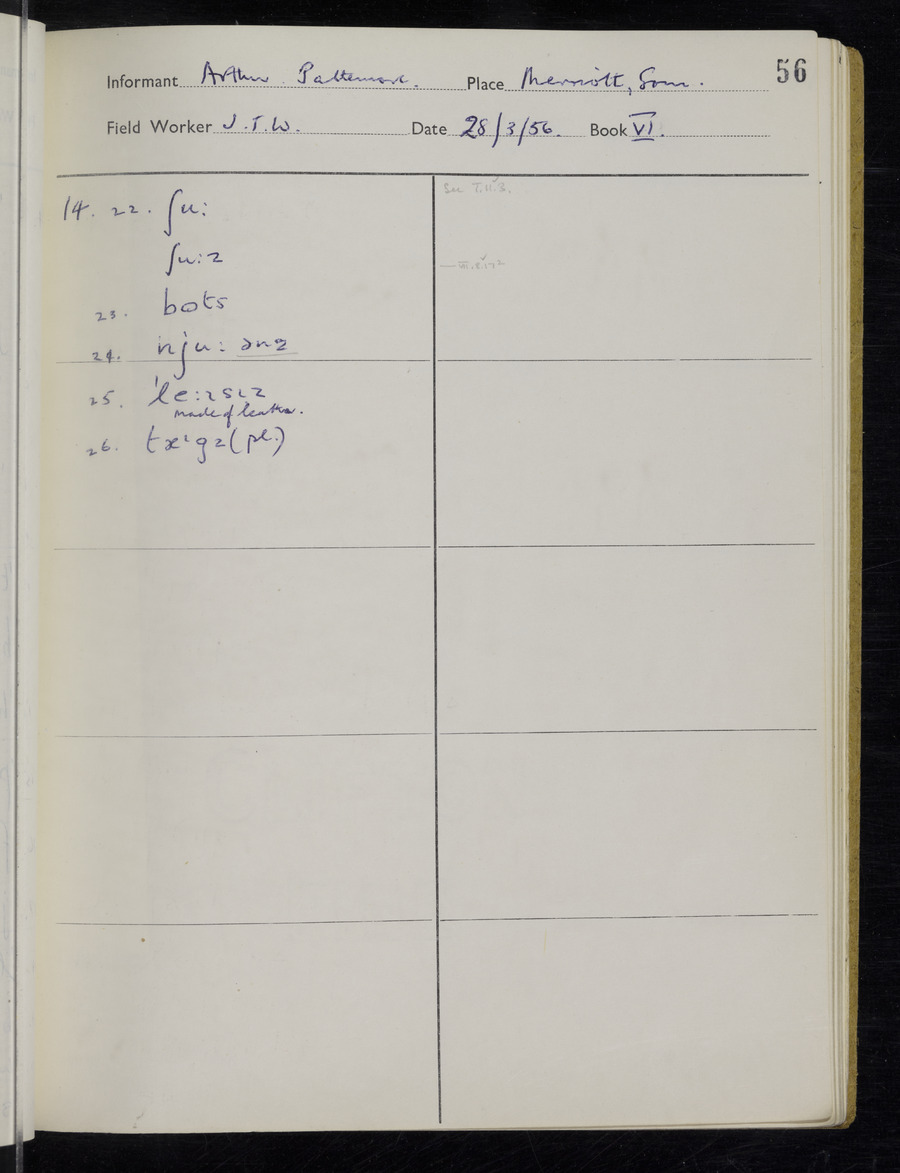 56
Informant Arthur Pattemore. Place Merriott, Som.
Field Worker J.T.W. Date 28/3/56. Book VI.
14. 22. ʃu: See
ʃu:z
23. bots
24. nju: ənz
25. 'le:ɹsɪz
made of leather.
26. tæˑgz (pl.)